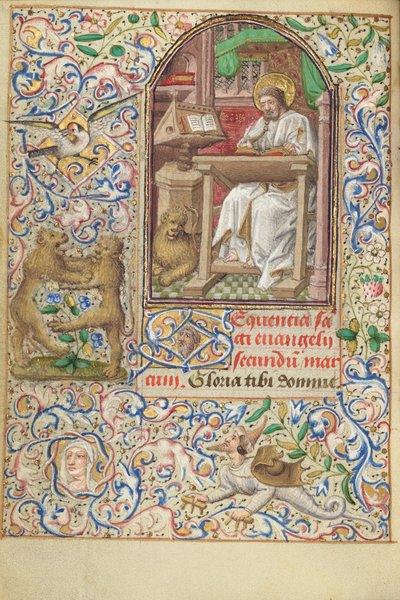 Sequentia sa
cti euangelij
secundū mar
cum, Gloria tibi Domine